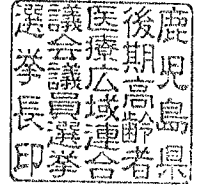 鹿児島県
後期高齢者
医療広域連合
議会議員選挙
選挙長印